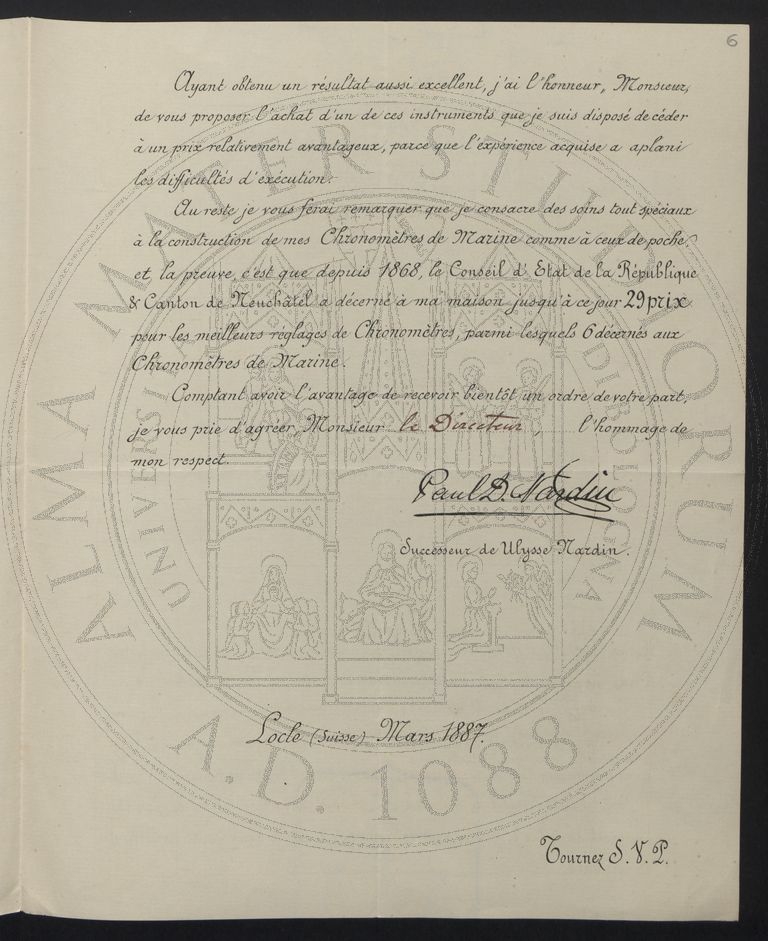 6
Ayant obtenu un résultat aussi excellent, j'ai l'honneur, Monsieur,
de vous proposer l'achat d'un de ces instruments que je suis disposé de céder
à un prix relativement avantageux, parce que l'expérience acquise a aplani
les difficultés d'exécution.
Au reste je vous ferai remarquer que je consacre des soins tout spéciaux
à la construction de mes Chronomètres de Marine comme à ceux de poche,
et la preuve, c'est que depuis 1868, le Conseil d'Etat de la République
& Canton de Neuchâtel a décerné à ma maison jusqu'à ce jour 29 prix
pour les meilleurs réglages de Chronomètres, parmi lesquels 6 décernés aux
Chronomètres de Marine.
Comptant avoir l'avantage de recevoir bientôt un ordre de votre part,
je vous prie d'agréer, Monsieur le Directeur, l'hommage de
mon respect.
Paul D. Nardin
Successeur de Ulysse Nardin.
Locle (Suisse) Mars 1887.
Tournez S. V. P.
ALMA MATER STUDIORUM
A.D. 1088